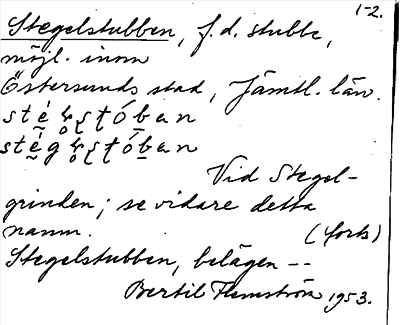 1-2.
Stegelstubben, f.d. stubbe,
möjl. inom
Östersunds stad, Jämtl. län.
Vid Stegel-
grinden; se vidare detta
namn. (forts)
Stegelstubben, belägen --
Bertil Flemström 1953.